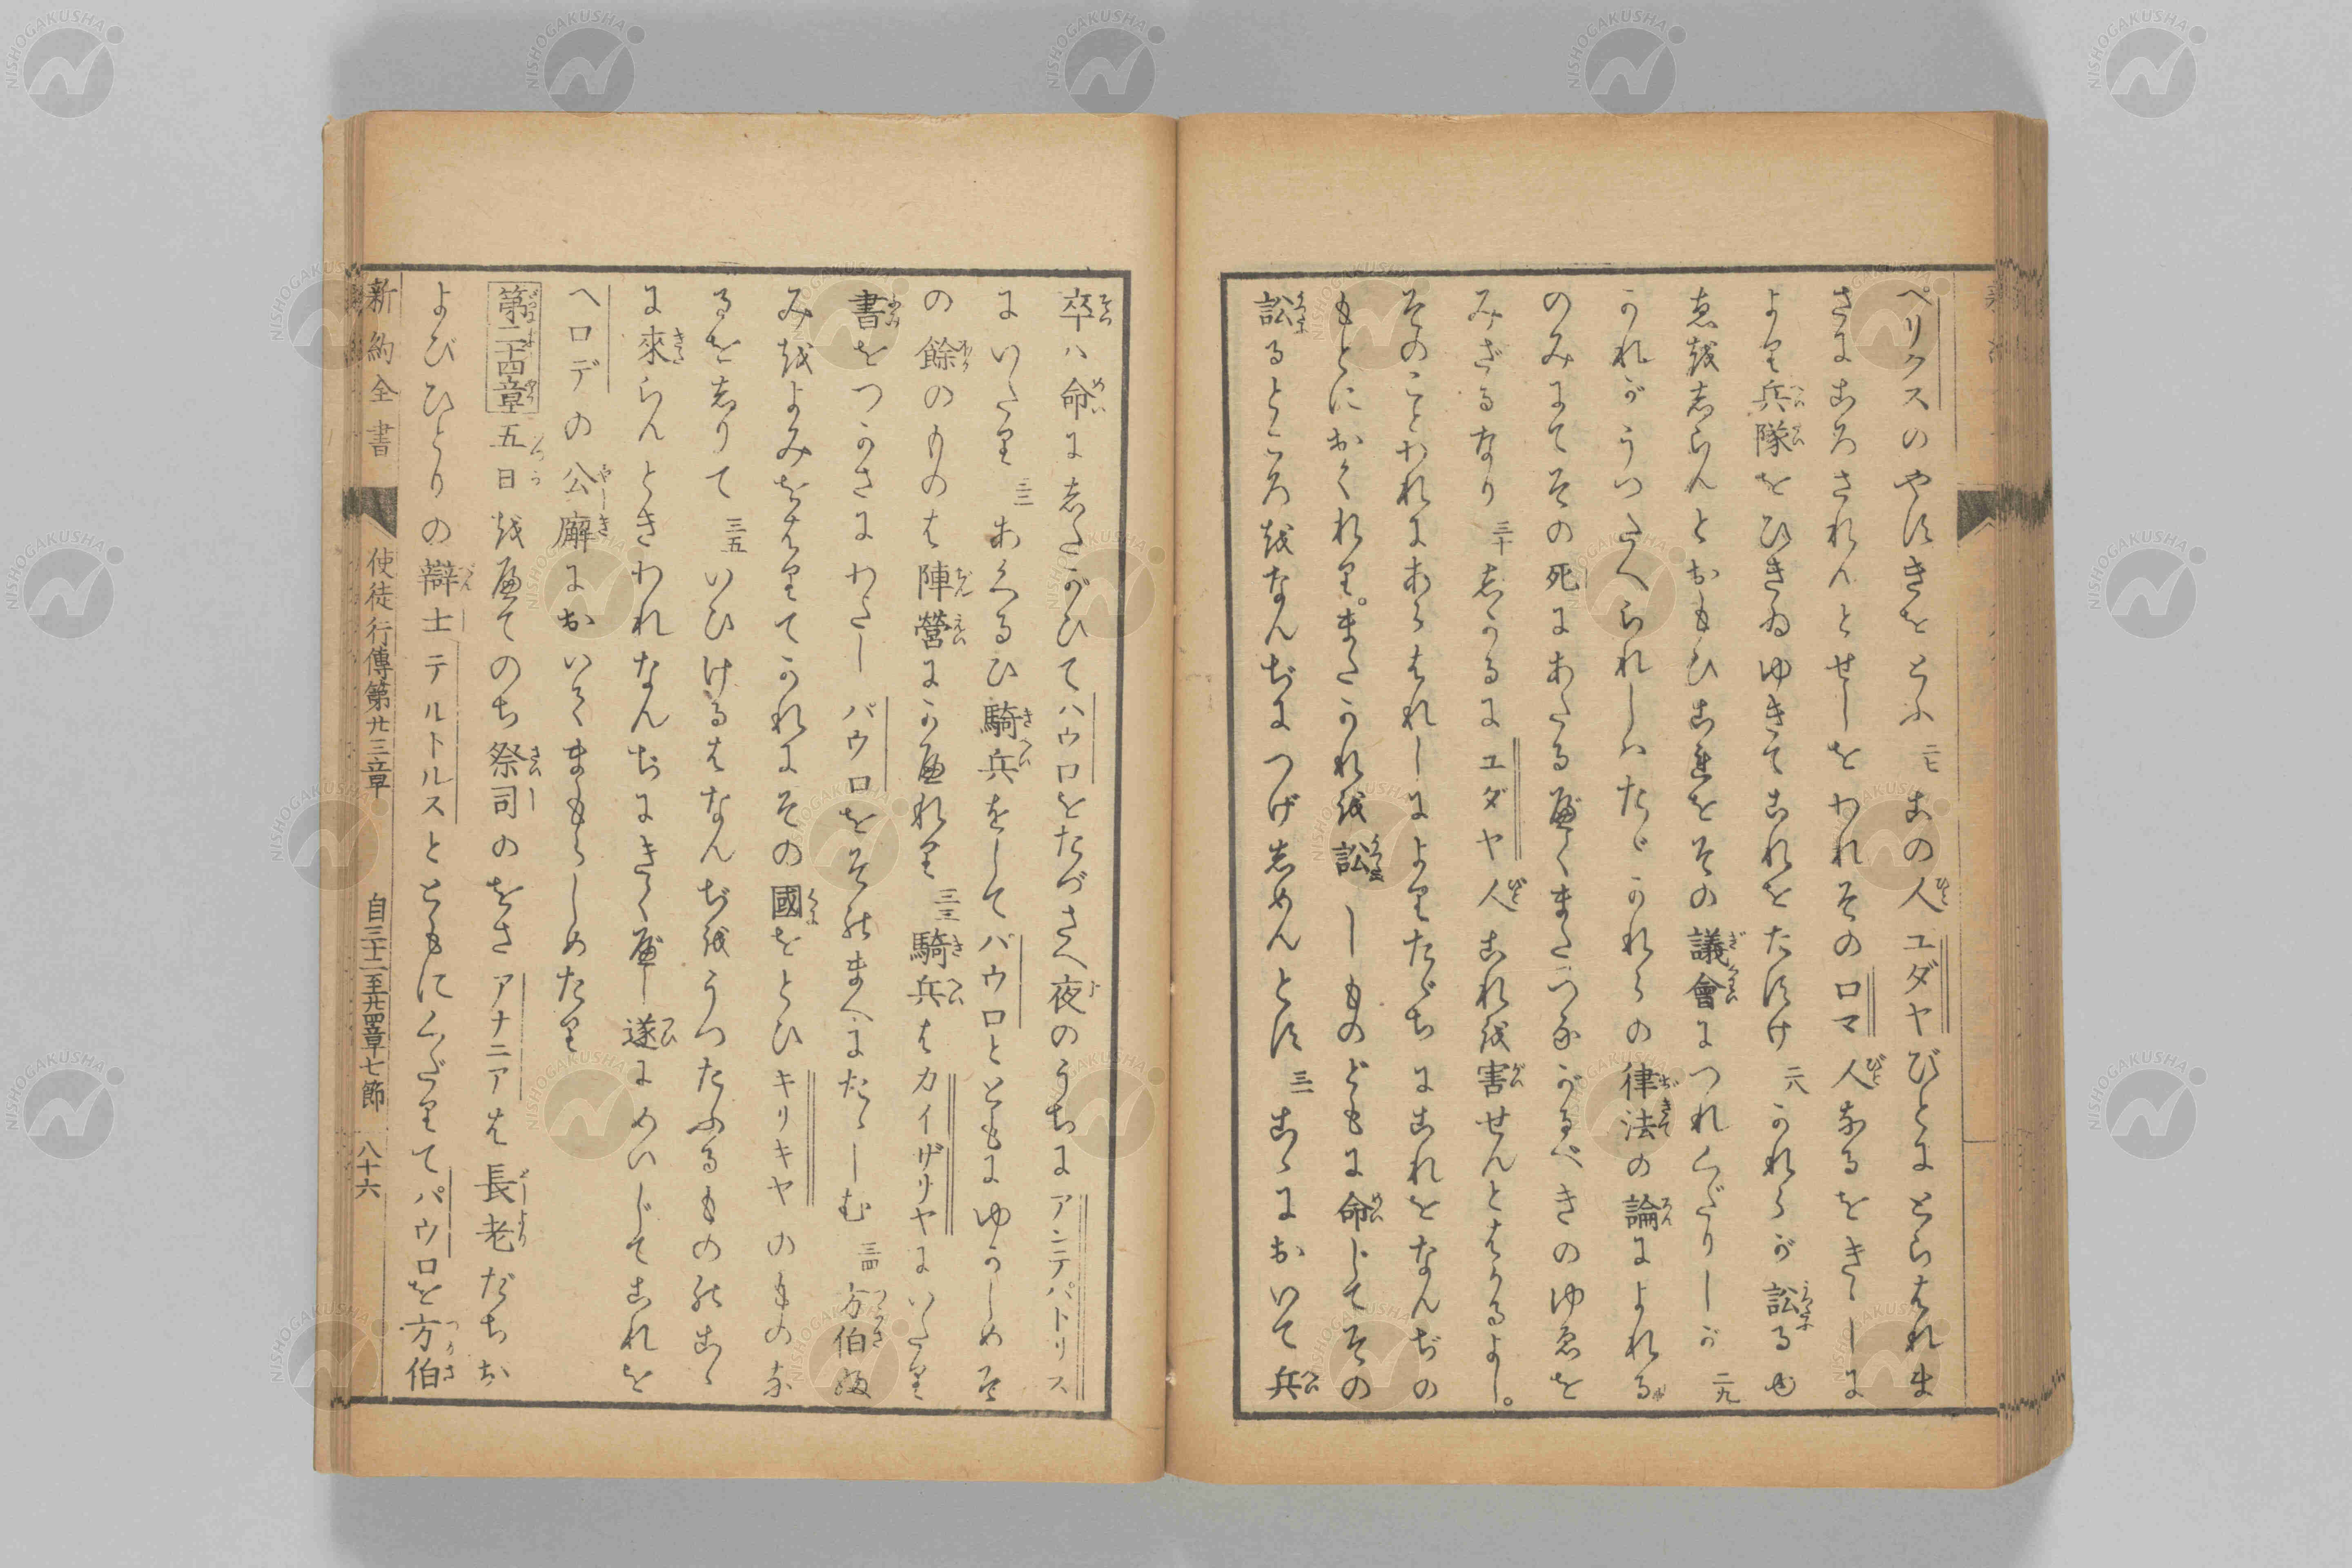 ペリクスのやすきをとふ 二七 この人ユダヤびとにとらはれま
さにころされんとせしをわれそのロマ人なるをきゝしに
より兵隊をひきゐゆきてこれをたすけ 二八 かれらが訟るゆ
ゑをしらんとおもひこれをその議會につれくだりしが 二九
かれがうつたへられしハたゞかれらの律法の論によれる
のみにてその死にあたるべくまたつながるべきのゆゑを
みざるなり 三十 しかるにユダヤ人これを害せんとはかるよし。
そのことわれにあらはれしによりたゞちにこれをなんぢの
もとにおくれり。またかれを訟しものどもに命じてその
訟るところをなんぢにつげしめんとす 三一 こゝにおいて兵
卒ハ命にしたがひてパウロをたづさへ夜のうちにアンテパトリス
にいたり 三二 あくるひ騎兵をしてパウロとともにゆかしめそ
の餘のものは陣營にかへれり 三三 騎兵はカイザリヤにいたり
書をつかさにわたしパウロをそのまへにたゝしむ 三四 方伯ふ
みをよみをはりてかれにその國をとひキリキヤのものな
るをしりて 三五 いひけるはなんぢをうつたふるもののこゝ
に來らんときわれなんぢにきくべし遂にめいじてこれを
ヘロデの公廨においてまもらしめたり
第二十四章 五日をへてのち祭司のをさアナニアは長老たちお
よびひとりの辯士テルトルスとともにくだりてパウロを方伯
新約全書 使徒行傳第廿三章 自三十二至廿四章七節 八十六